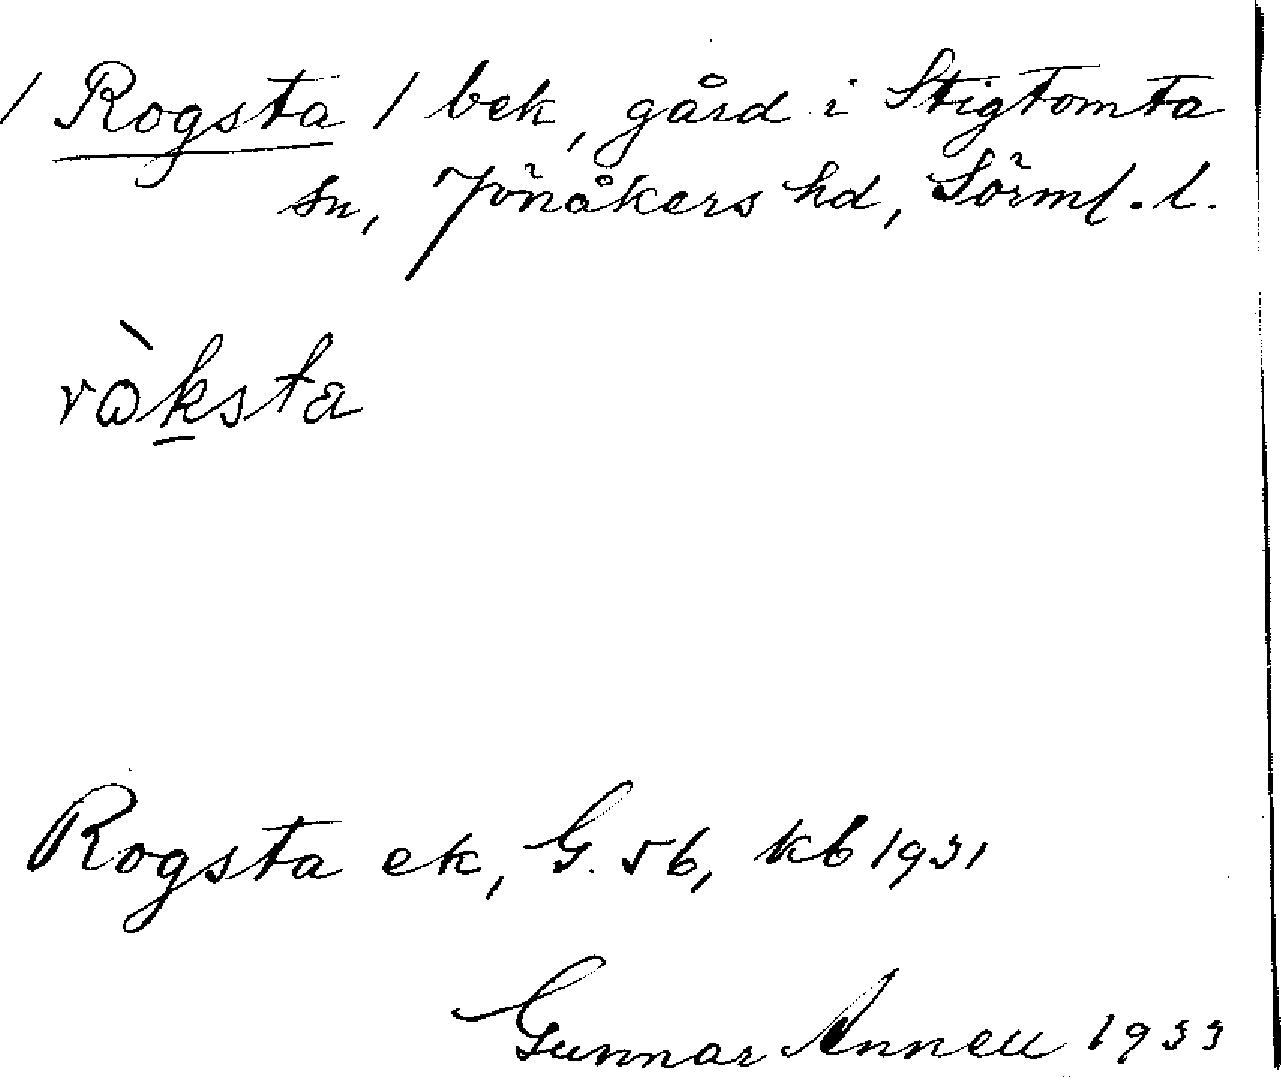 / Rogsta / bek, gård i Stigtomta
sn, Jönåkers hd, Sörml. l.
ròksta
Rogsta ek, G. 56, kb 1931
Gunnar Annell 1933